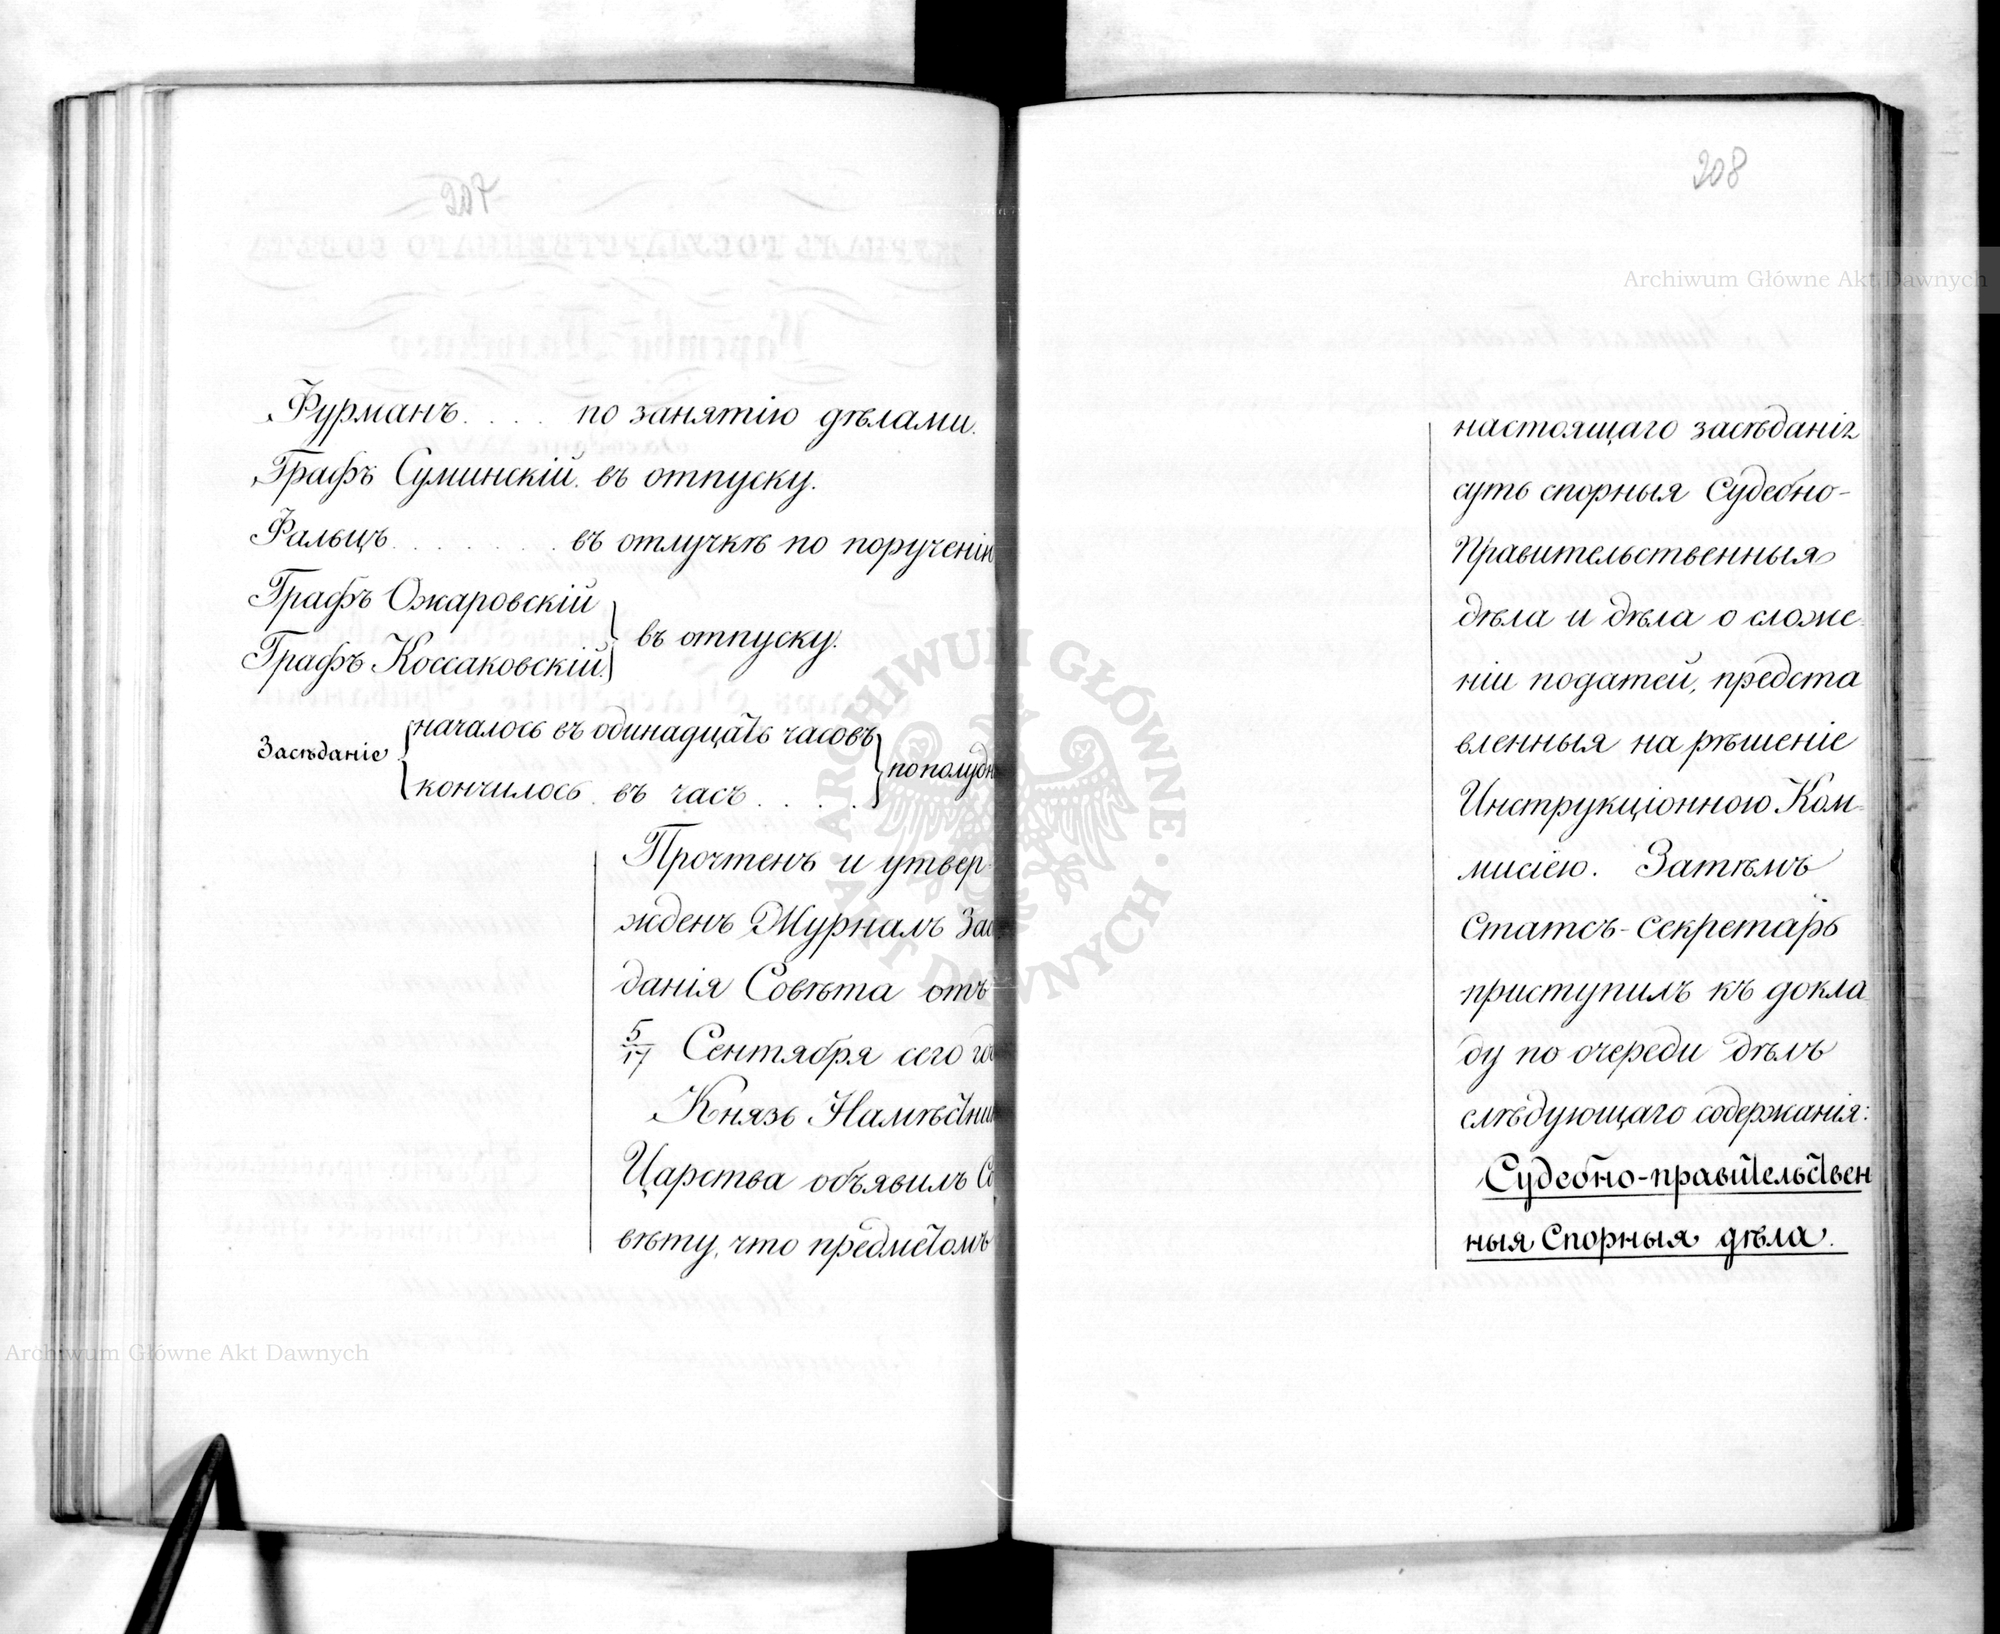 Фурманъ . . . . по занятію дѣлами.
Графъ Суминскій. въ отпуску.
Фальцъ . . . . . . . . въ отлучкѣ по порученію
Графъ Ожаровскій
Графъ Коссаковскій.
въ отпуску.
Засѣданіе
началось въ одинадцать часовъ
кончилось въ часъ . . . . .
пополудн
Прочтенъ и утвер-
жденъ Журналъ Зас
данія Совѣта отъ
5/17 Сентября сего го
Князь Намѣстни
Царства объявилъ Со
вѣту, что предметомъ
208
настоящаго засѣданія
суть спорныя Судебно-
Правительственныя
дѣла и дѣла о сложе-
ніи податей, предста
вленныя на рѣшеніе
Инструкціонною Ком-
мисіею. Затѣмъ
Статсъ-секретарь
приступилъ къ докла
ду по очереди дѣлъ
слѣдующаго содержанія:
Судебно-правительствен
ныя Спорныя дѣла.
Archiwum Główne Akt Dawnych
ARCHIWUM GŁÓWNE AKT DAWNYCH
Archiwum Główne Akt Dawnych